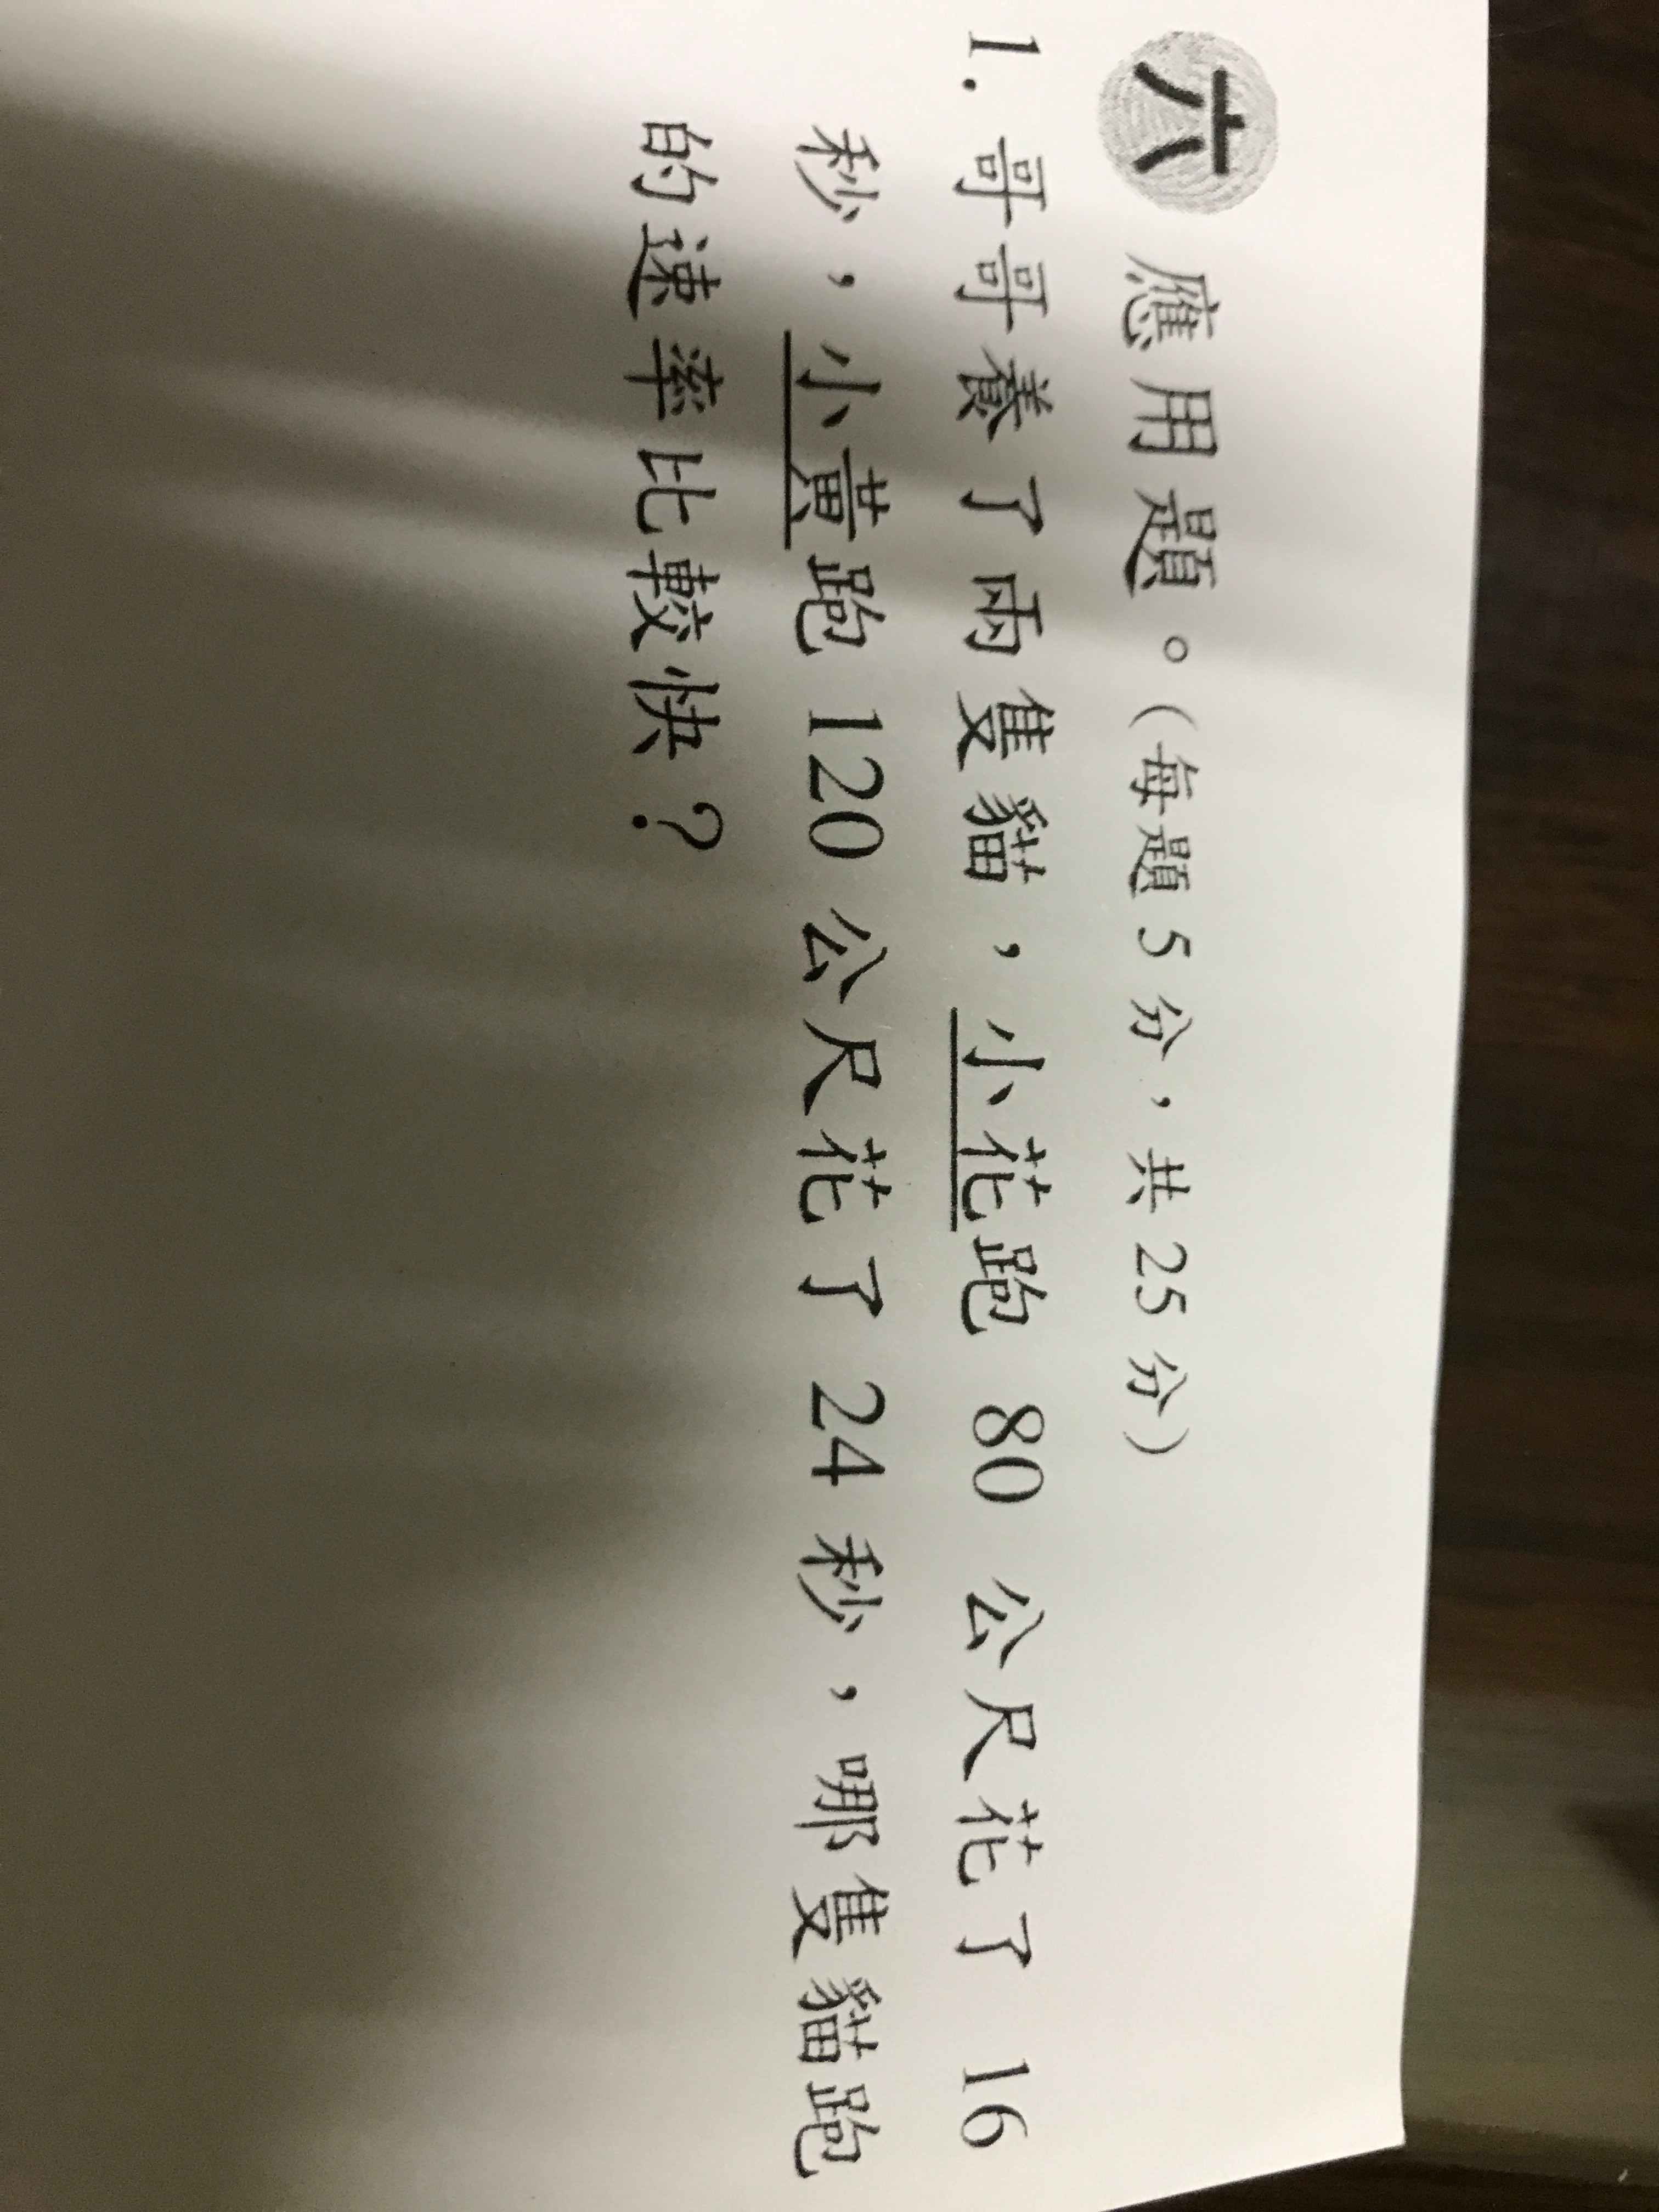 六 應用題。(每題 5 分，共 25 分)
1. 哥哥養了兩隻貓，小花跑 80 公尺花了 16
秒，小黃跑 120 公尺花了 24 秒，哪隻貓跑
的速率比較快？